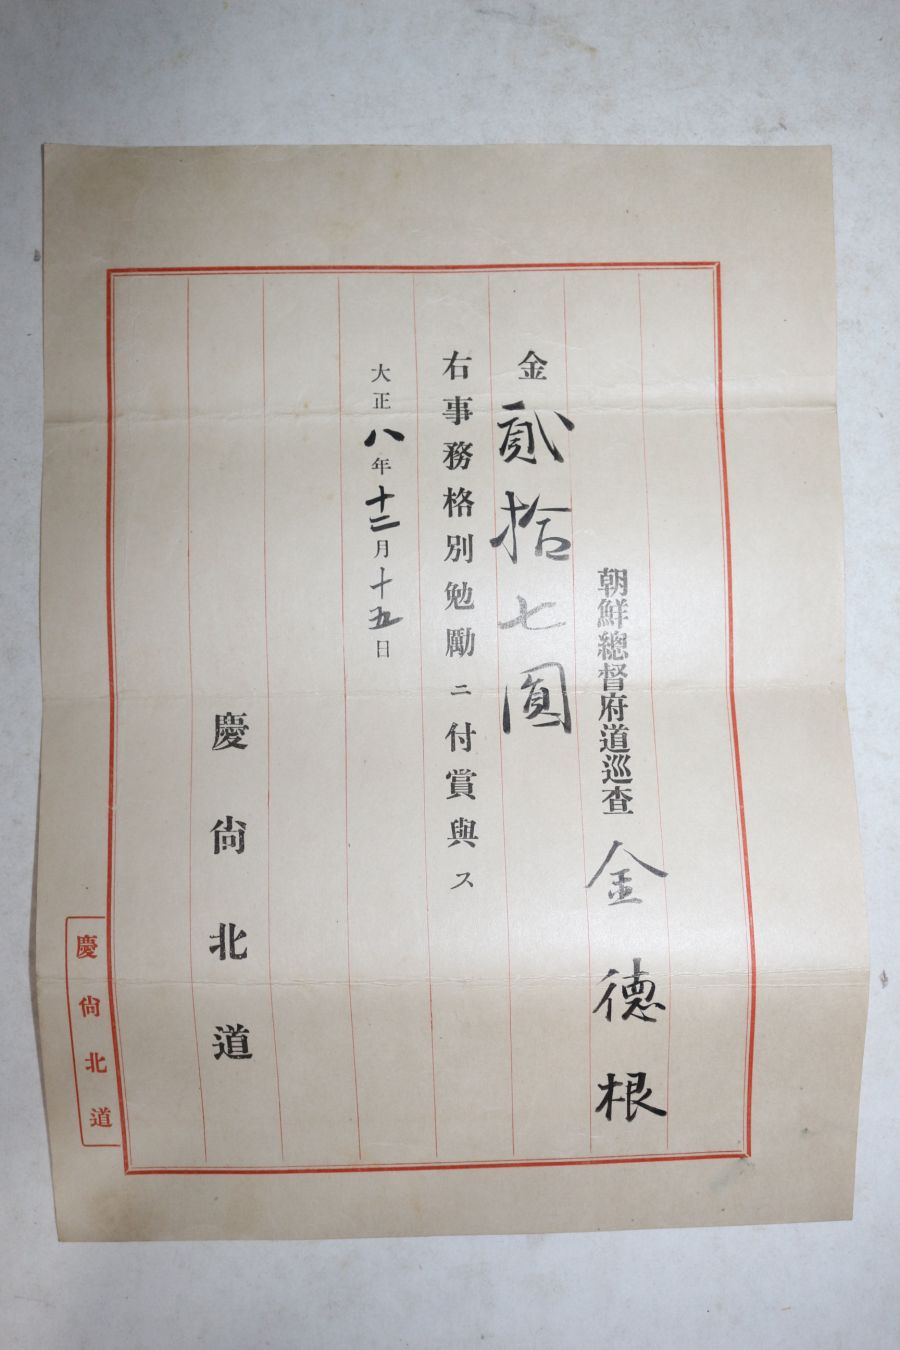 朝鮮總督府道巡査 金德根
金貳拾七圓
右事務格別勉勵ニ付賞與ス
大正八年十二月十五日
慶尙北道
慶尙北道